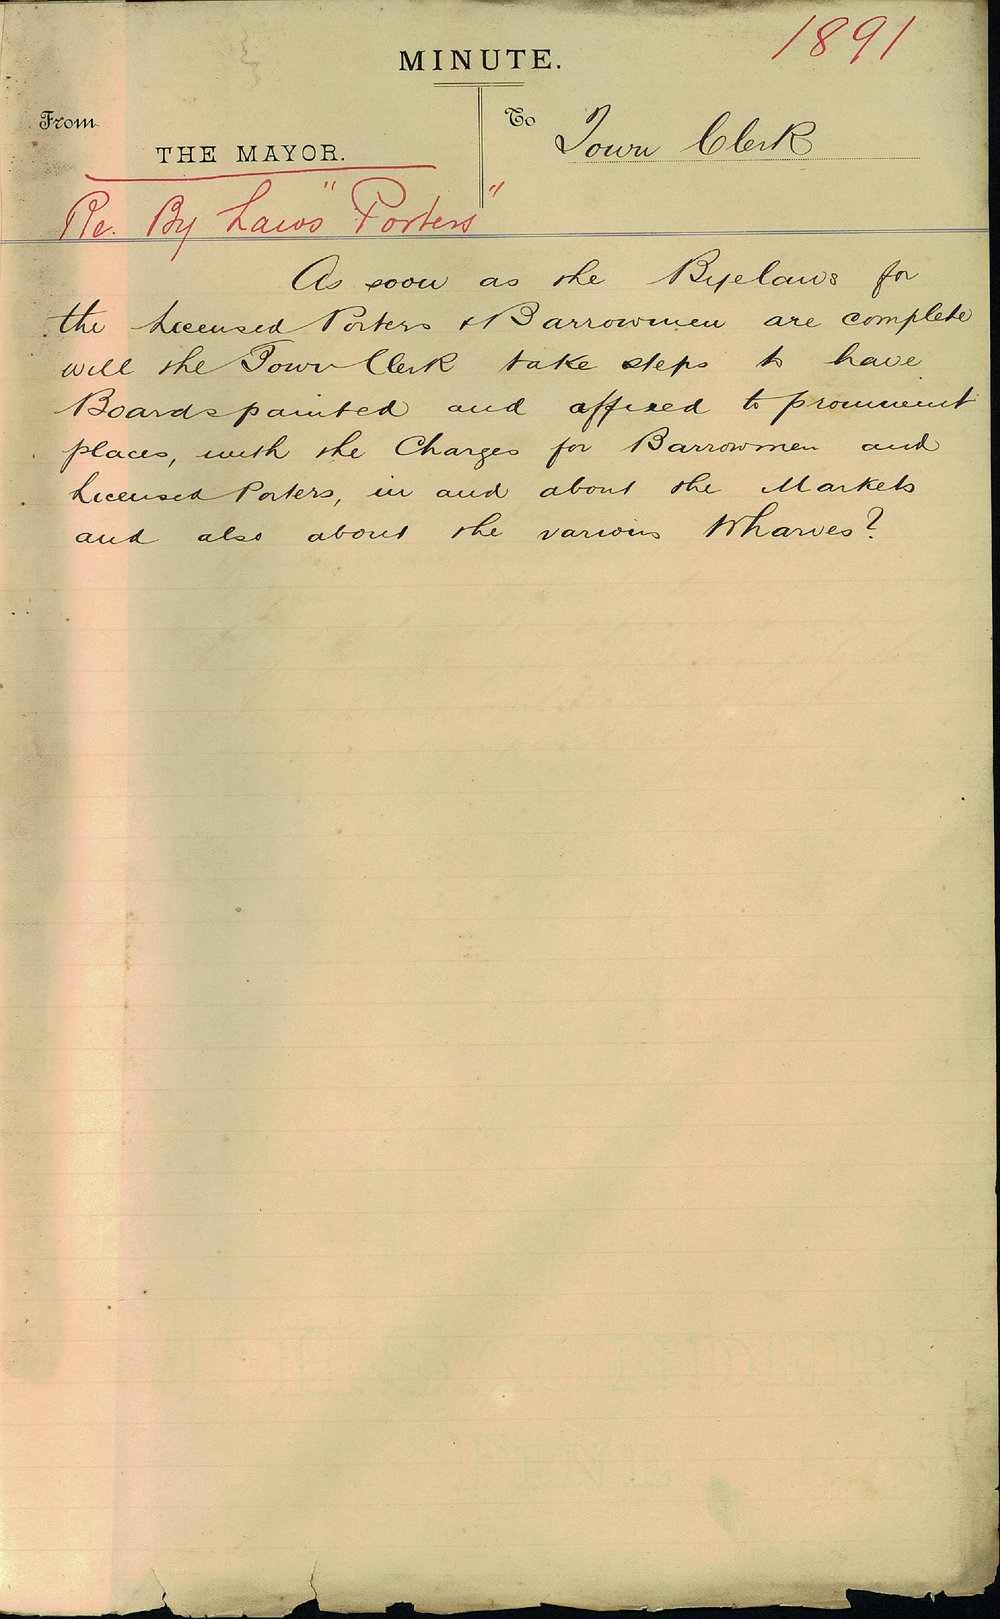 1891
MINUTE.
From
THE MAYOR.
To
Town Clerk
Re. By Laws "Porters"
As soon as the Byelaws for
the Licensed Porters & Barrowmen are complete
will the Town Clerk take steps to have
Boards painted and affixed to prominent
places, with the Charges for Barrowmen and
Licensed Porters, in and about the Markets
and also about the various Wharves?